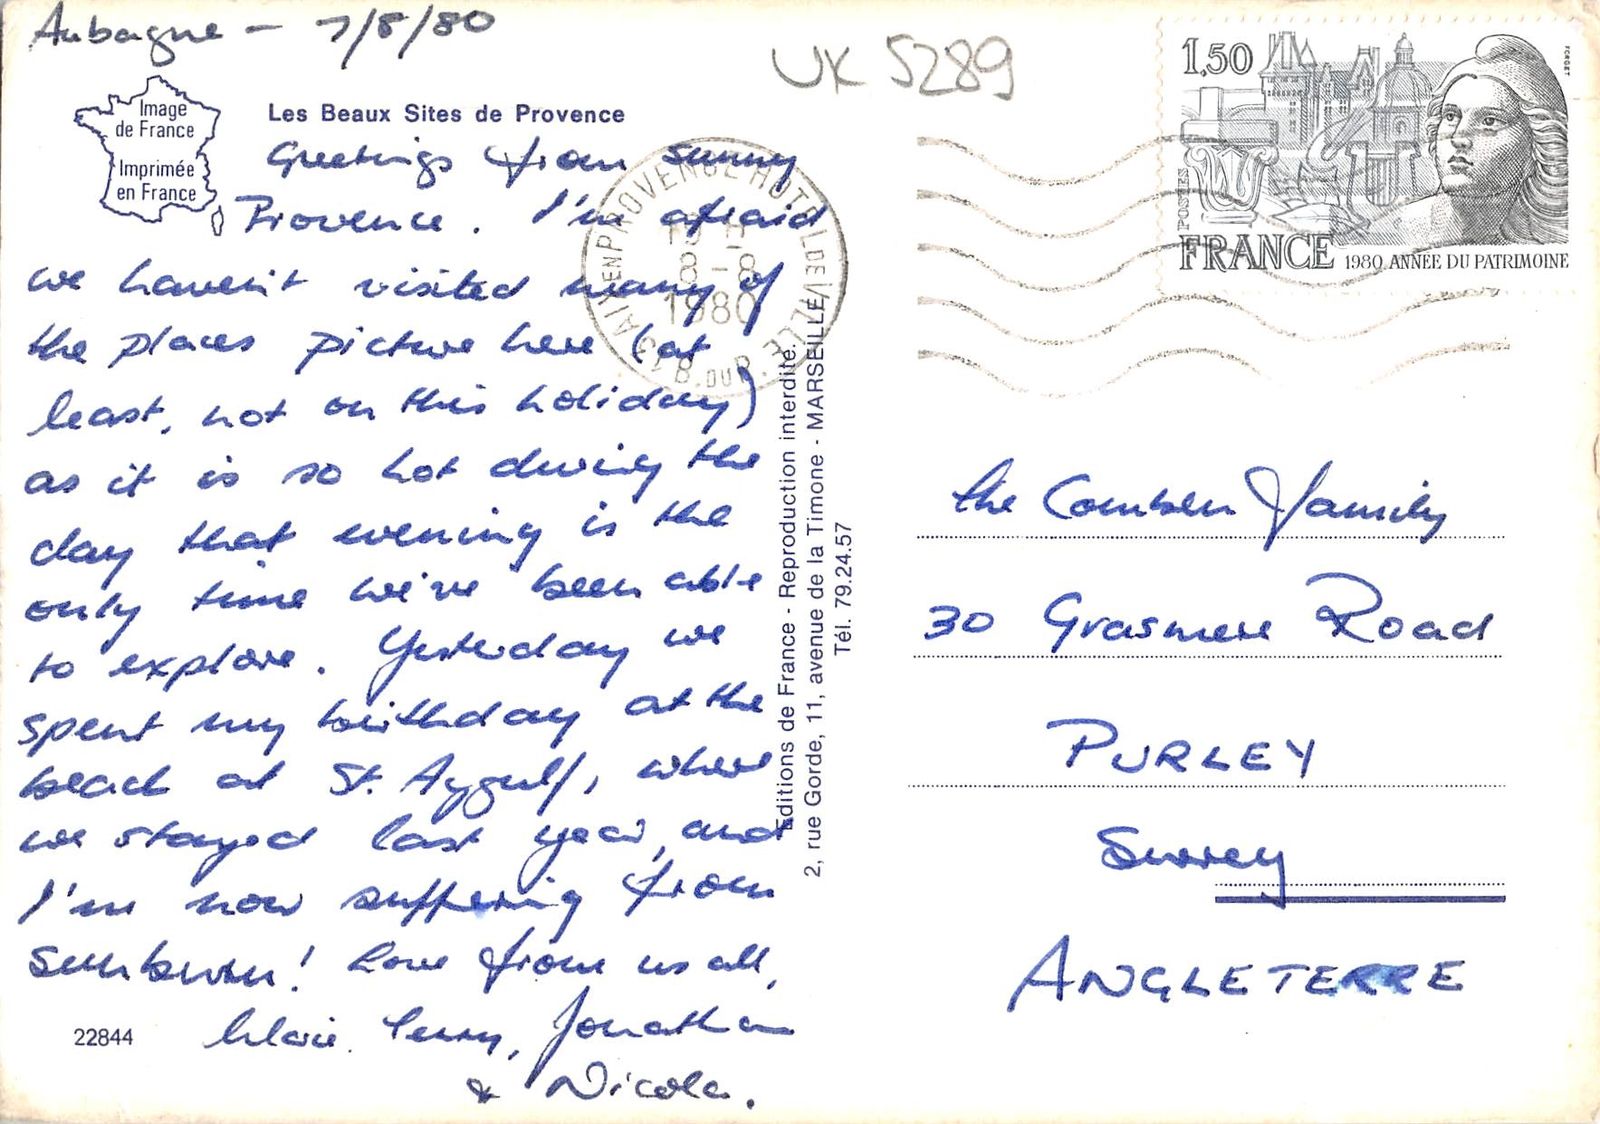 Aubagne - 7/8/80
UK 5289
Image
de France
Imprimée
en France
Les Beaux Sites de Provence
Greetings from sunny
Provence. I'm afraid
we haven't visited many of
the places picture here (at
least, not on this holiday)
as it is so hot during the
day that evening is the
only time we've been able
to explore. Yesterday we
spent my birthday at the
beach at St. Aygulf, where
we stayed last year, and
I'm now suffering from
sunburn! Love from us all,
Terry, Jonathan
& Nicola.
22844
Editions de France - Reproduction interdite.
2, rue Gorde, 11, avenue de la Timone - MARSEILLE
Tél. 79.24.57
AIX EN PROVENCE HOTEL DE VILLE
8 - 8
1980
B. DU R.
1,50
FORGET
POSTES
FRANCE 1980 ANNÉE DU PATRIMOINE
The Comben Family
30 Grasmere Road
PURLEY
Surrey
ANGLETERRE